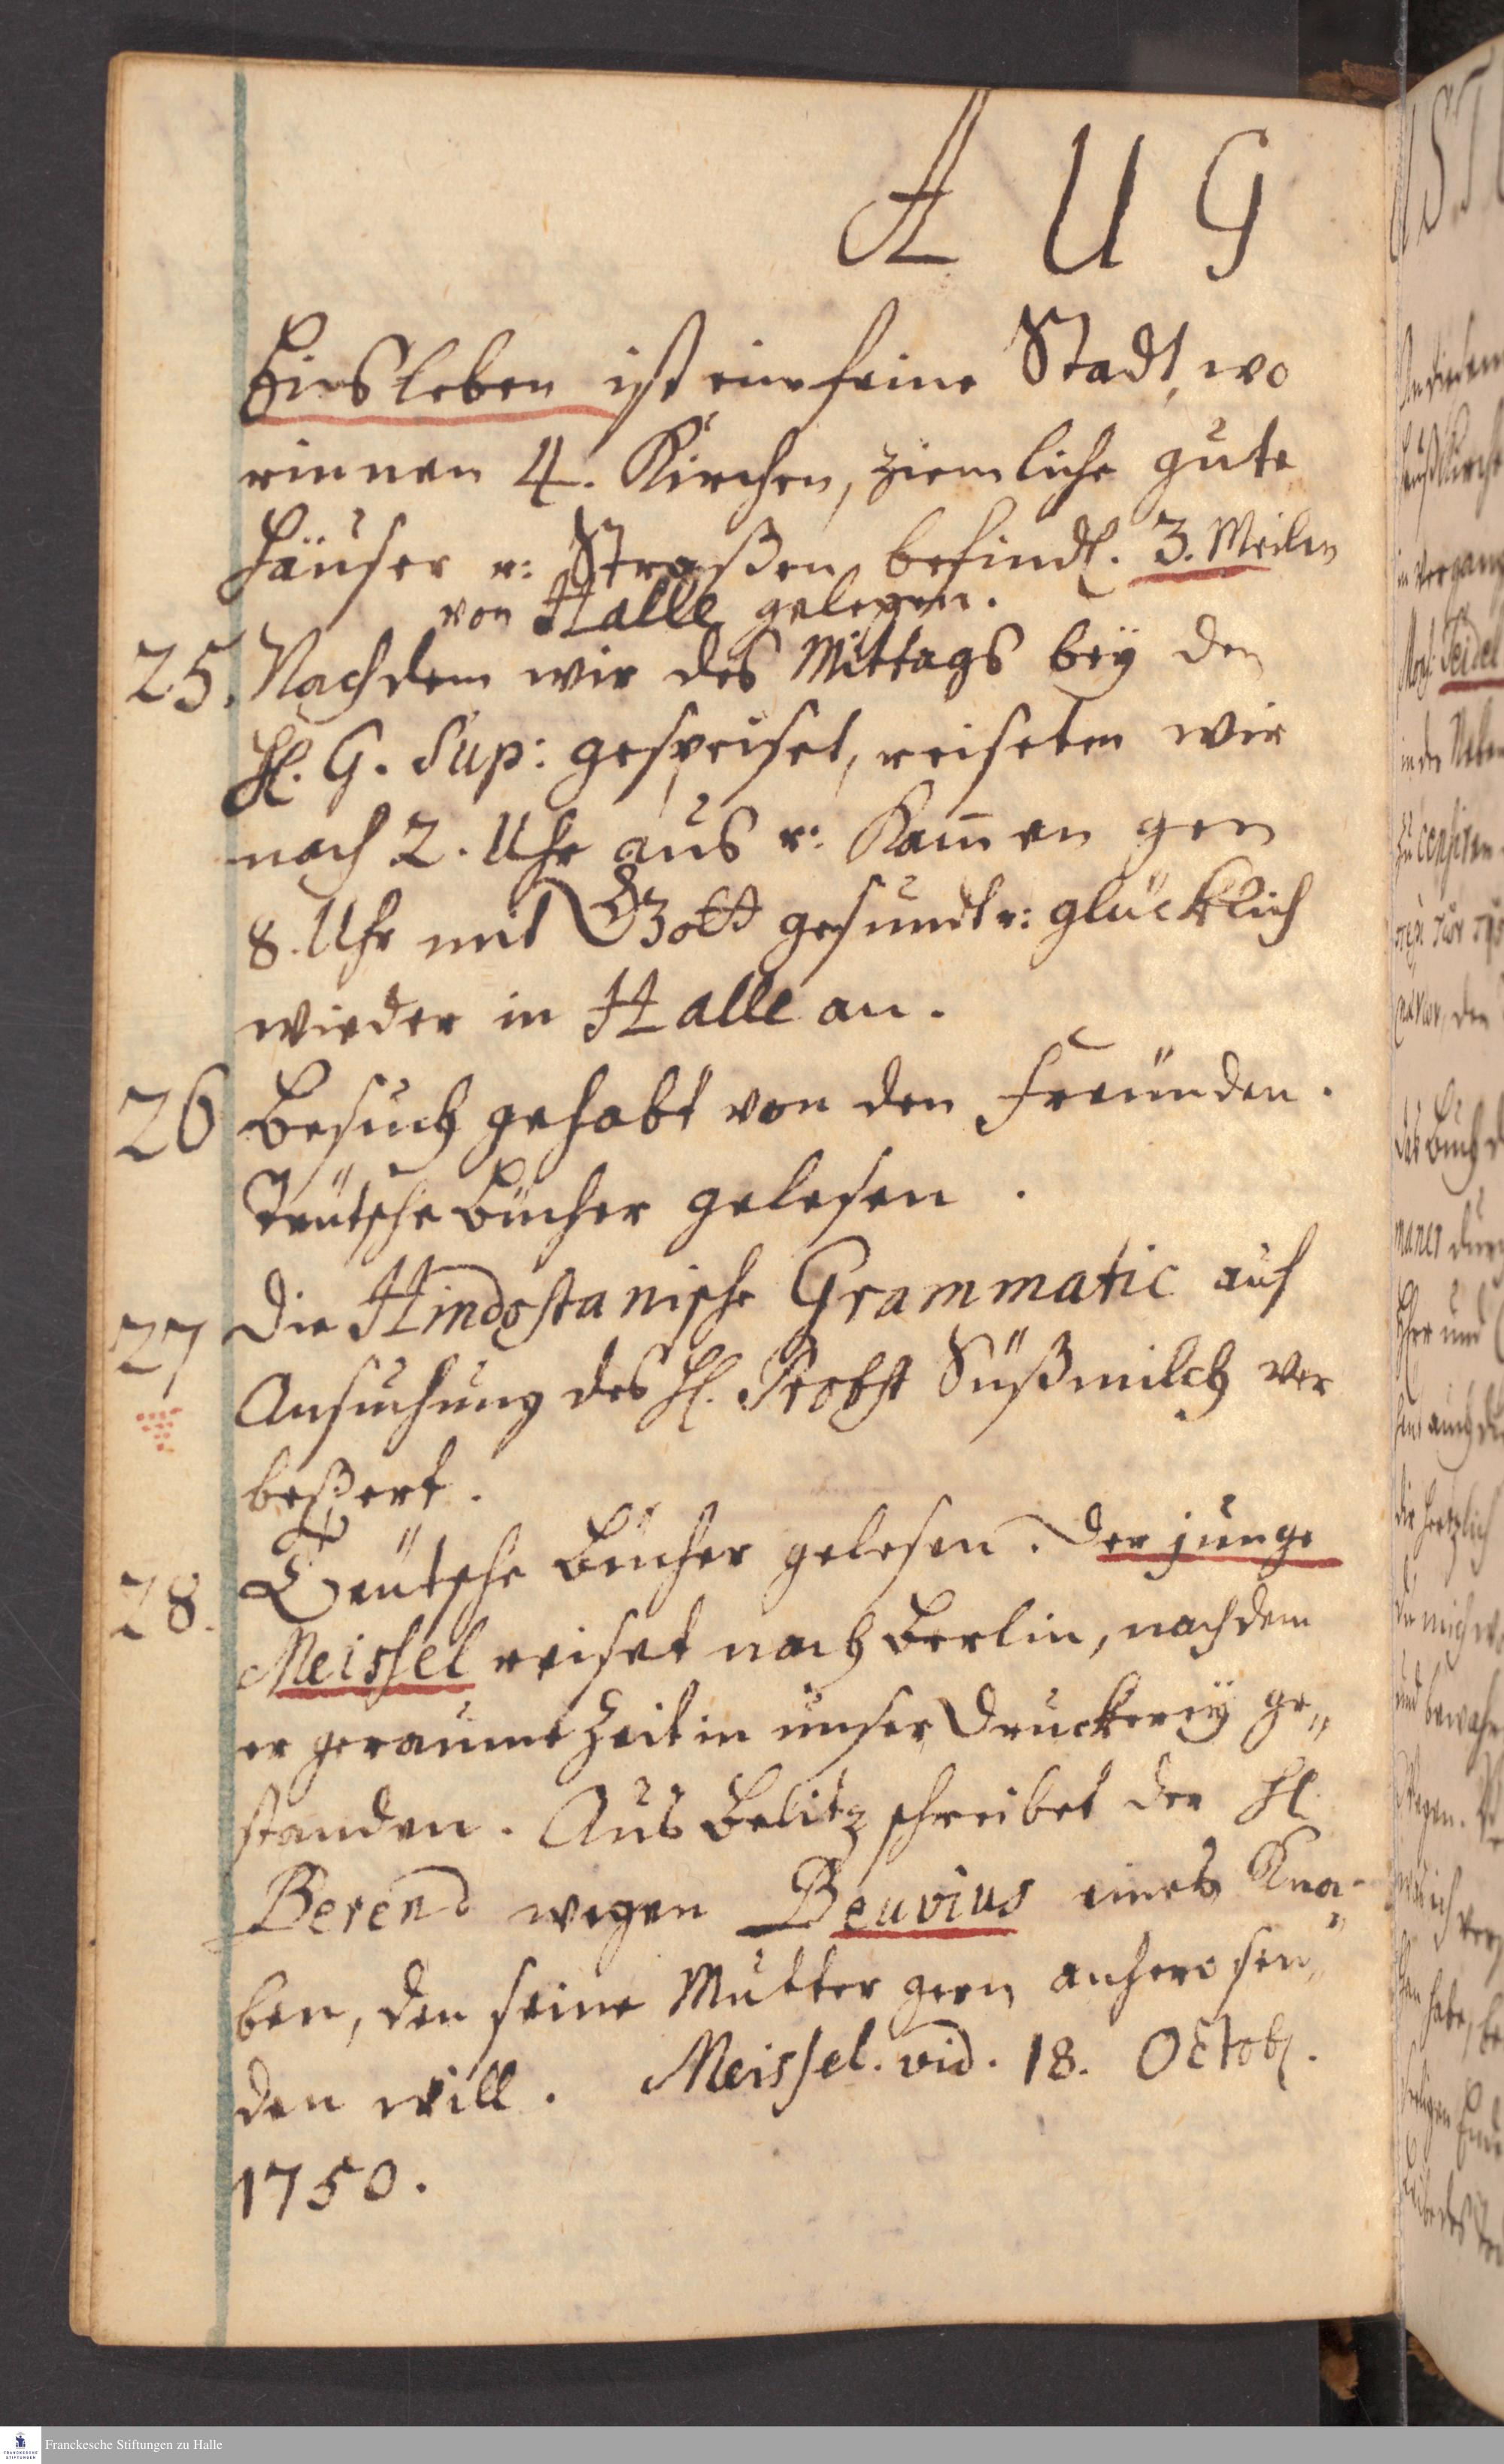 A U G
Eiesleben ist eine feine Stadt, wo
rinnen 4. Kirchen, ziemliche gute
Häuser u: Straßen befindl. 3. Meilen
von Halle gelegen.
25. Nachdem wir des Mittags bey den
H. G. Sup: gespeiset, reiseten wir
nach 2. Uhr aus u: kam̅en gen
8. Uhr mit Gott gesundt u: glücklich
wieder in Halle an.
26 Besuch gehabt von den Freünden.
Teütsche Bücher gelesen.
27 Die Hindostanische Grammatic auf
Ansuchung des H. Probst Süßmilch ver
beßert.
28. Teütsche Bücher gelesen. Der junge
Meissel reiset nach Berlin, nachdem
er geraume Zeit in unser Druckerey ge„
standen. Aus Belitz schreibet der H.
Berend wegen Beuvius eines Kna-
ben, den seine Mutter gern anhero sen„
den will. Meissel. vid. 18. Octob.
1750.
Franckesche Stiftungen zu Halle